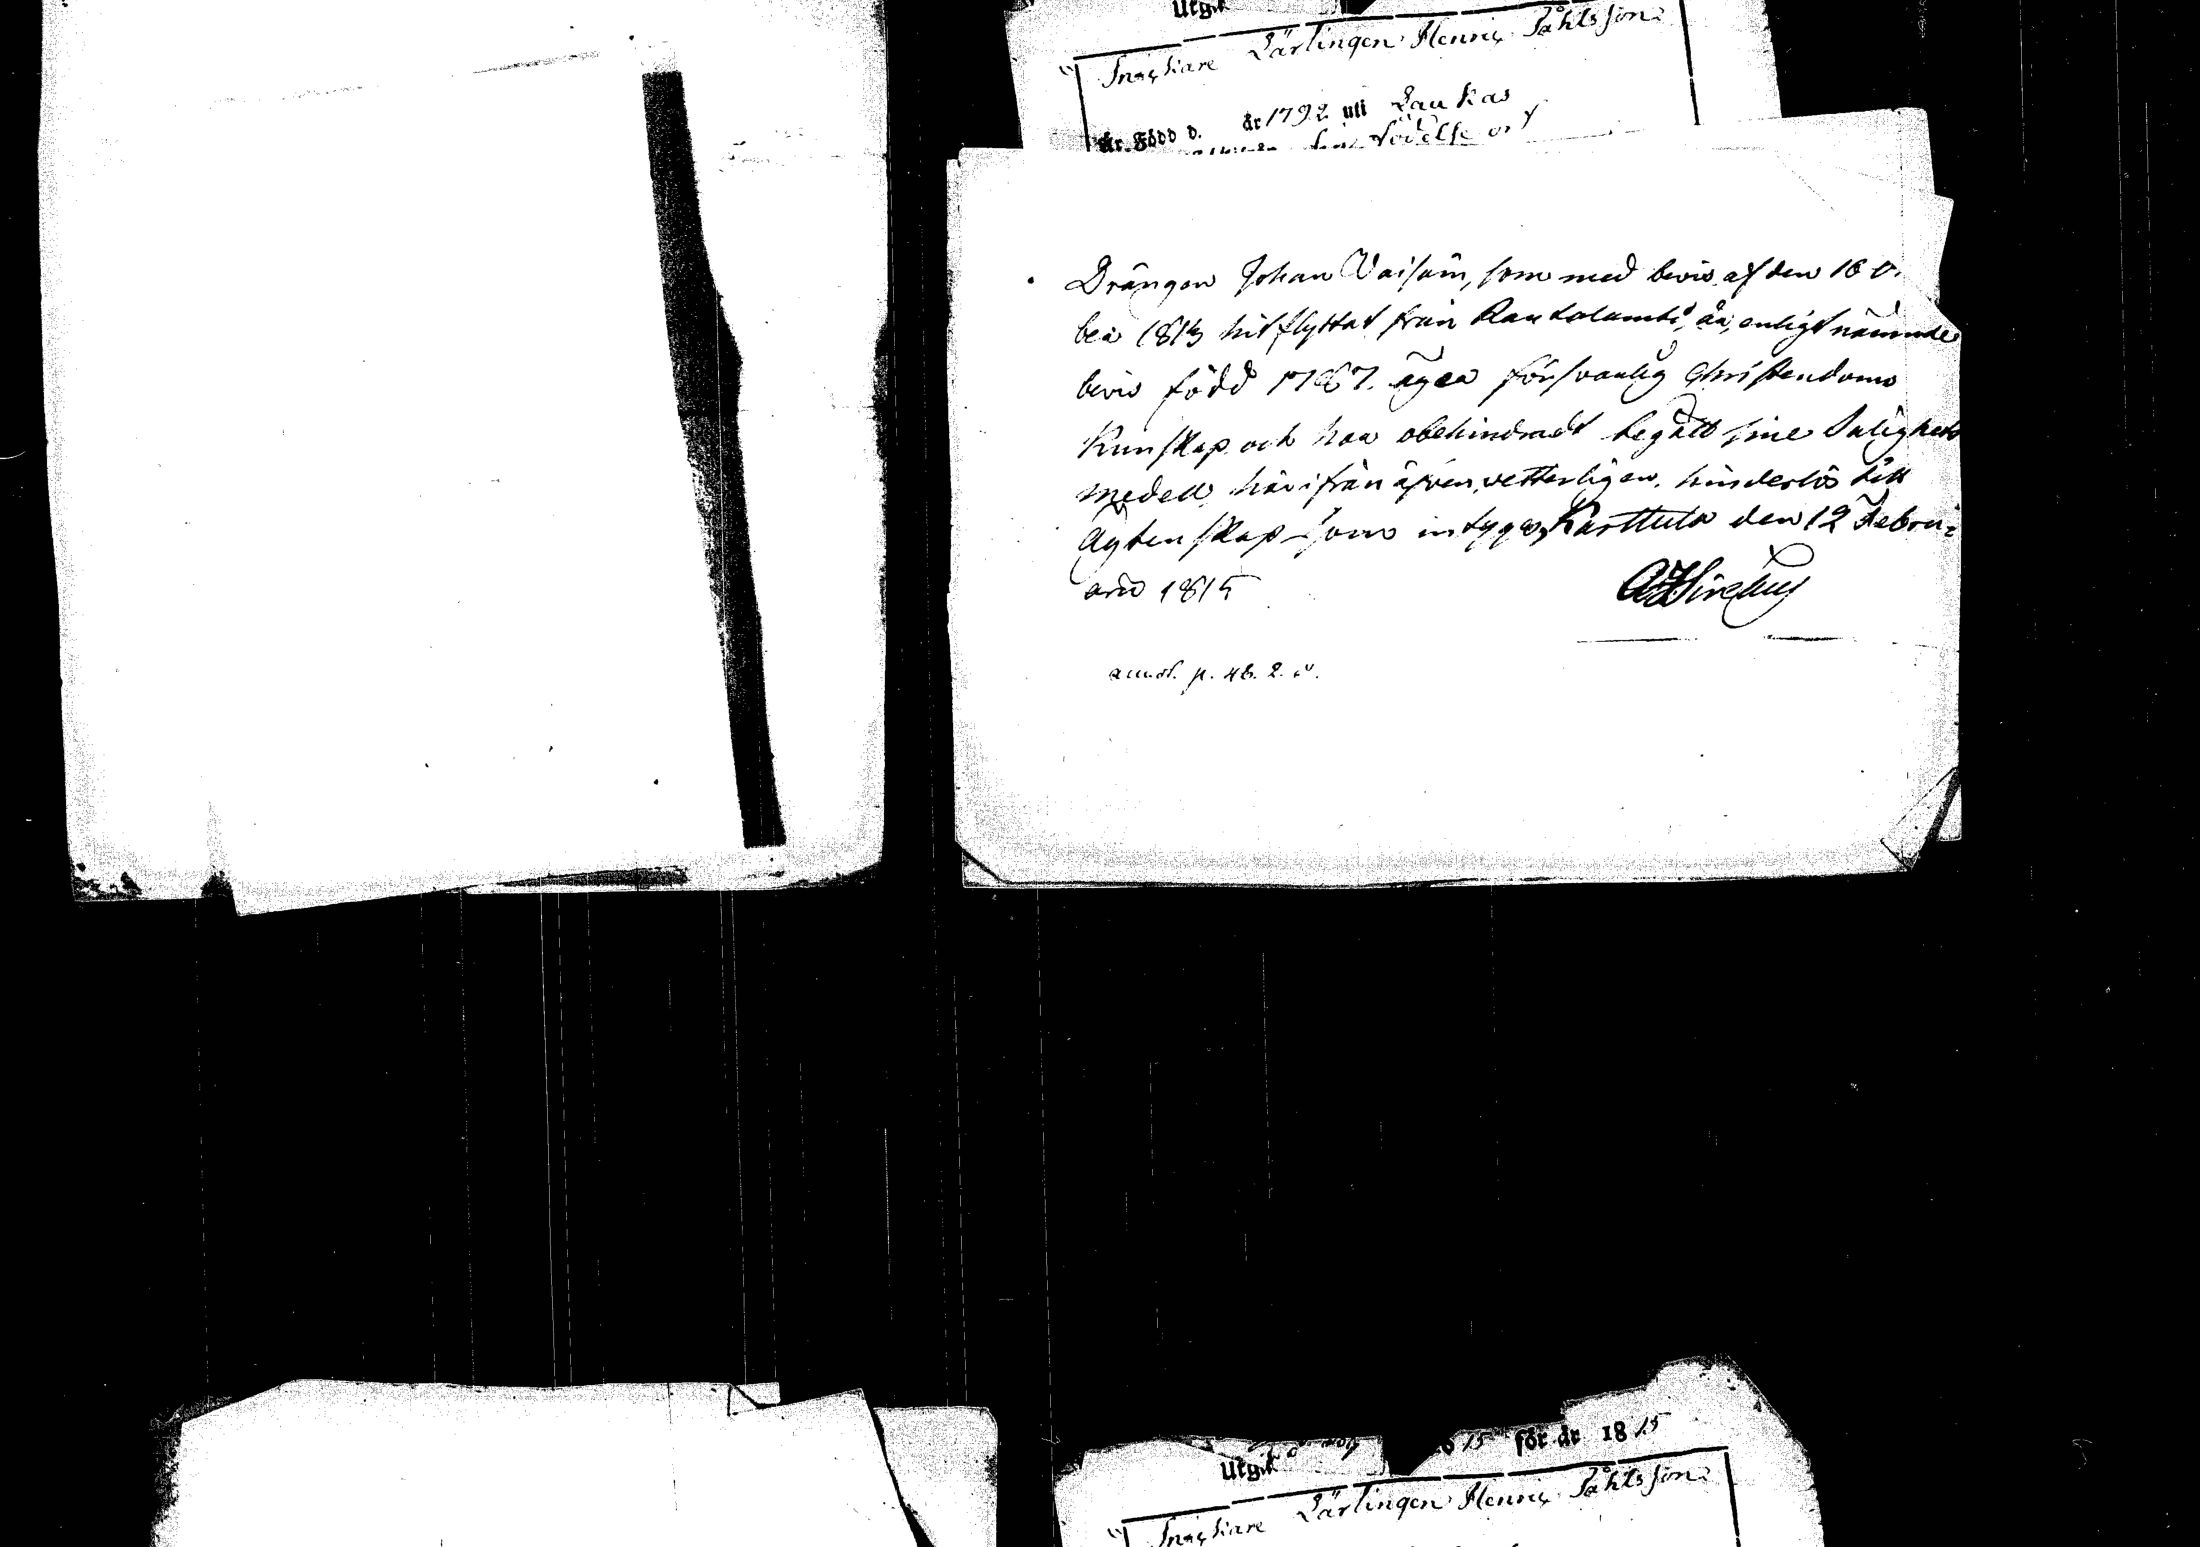 Utgift
Innehafvare Lärlingen Henric Påhlsson
År. Född d. år 1792 uti Laukas
födelse ort
Drängen Johan Vaisain, som med bevis af den 16 O.
ber 1813 hitflyttat från Rautalambi, är, enligt nämnde
bevis född 1787. äger försvarlig Christendoms
Kunskap och har obehindradt begått sine Salighets
medell, härifrån äfven, vetterligen, hinderlös till
Ägtenskap som intygas, Karttula den 12 Febru=
arii 1815
annot. p. 46. 2.
15 för år 1815
Utgift
Innehafvare Lärlingen Henric Påhlsson